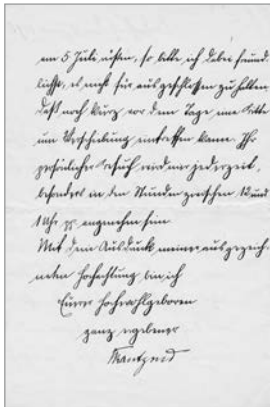 am 5 Juli richten, so bitte ich dabei freund-
lichst, es nicht für ausgeschlossen zu halten,
daß noch kurz vor dem Tage eine Bitte
um Verschiebung eintreffen kann. Ihr
persönlicher Besuch wird mir jederzeit,
besonders in den Stunden zwischen 12 und
1 Uhr pp. angenehm sein
Mit dem Ausdruck meiner ausgezeich-
neten Hochachtung bin ich
Euer Hochwohlgeboren
ganz ergebener